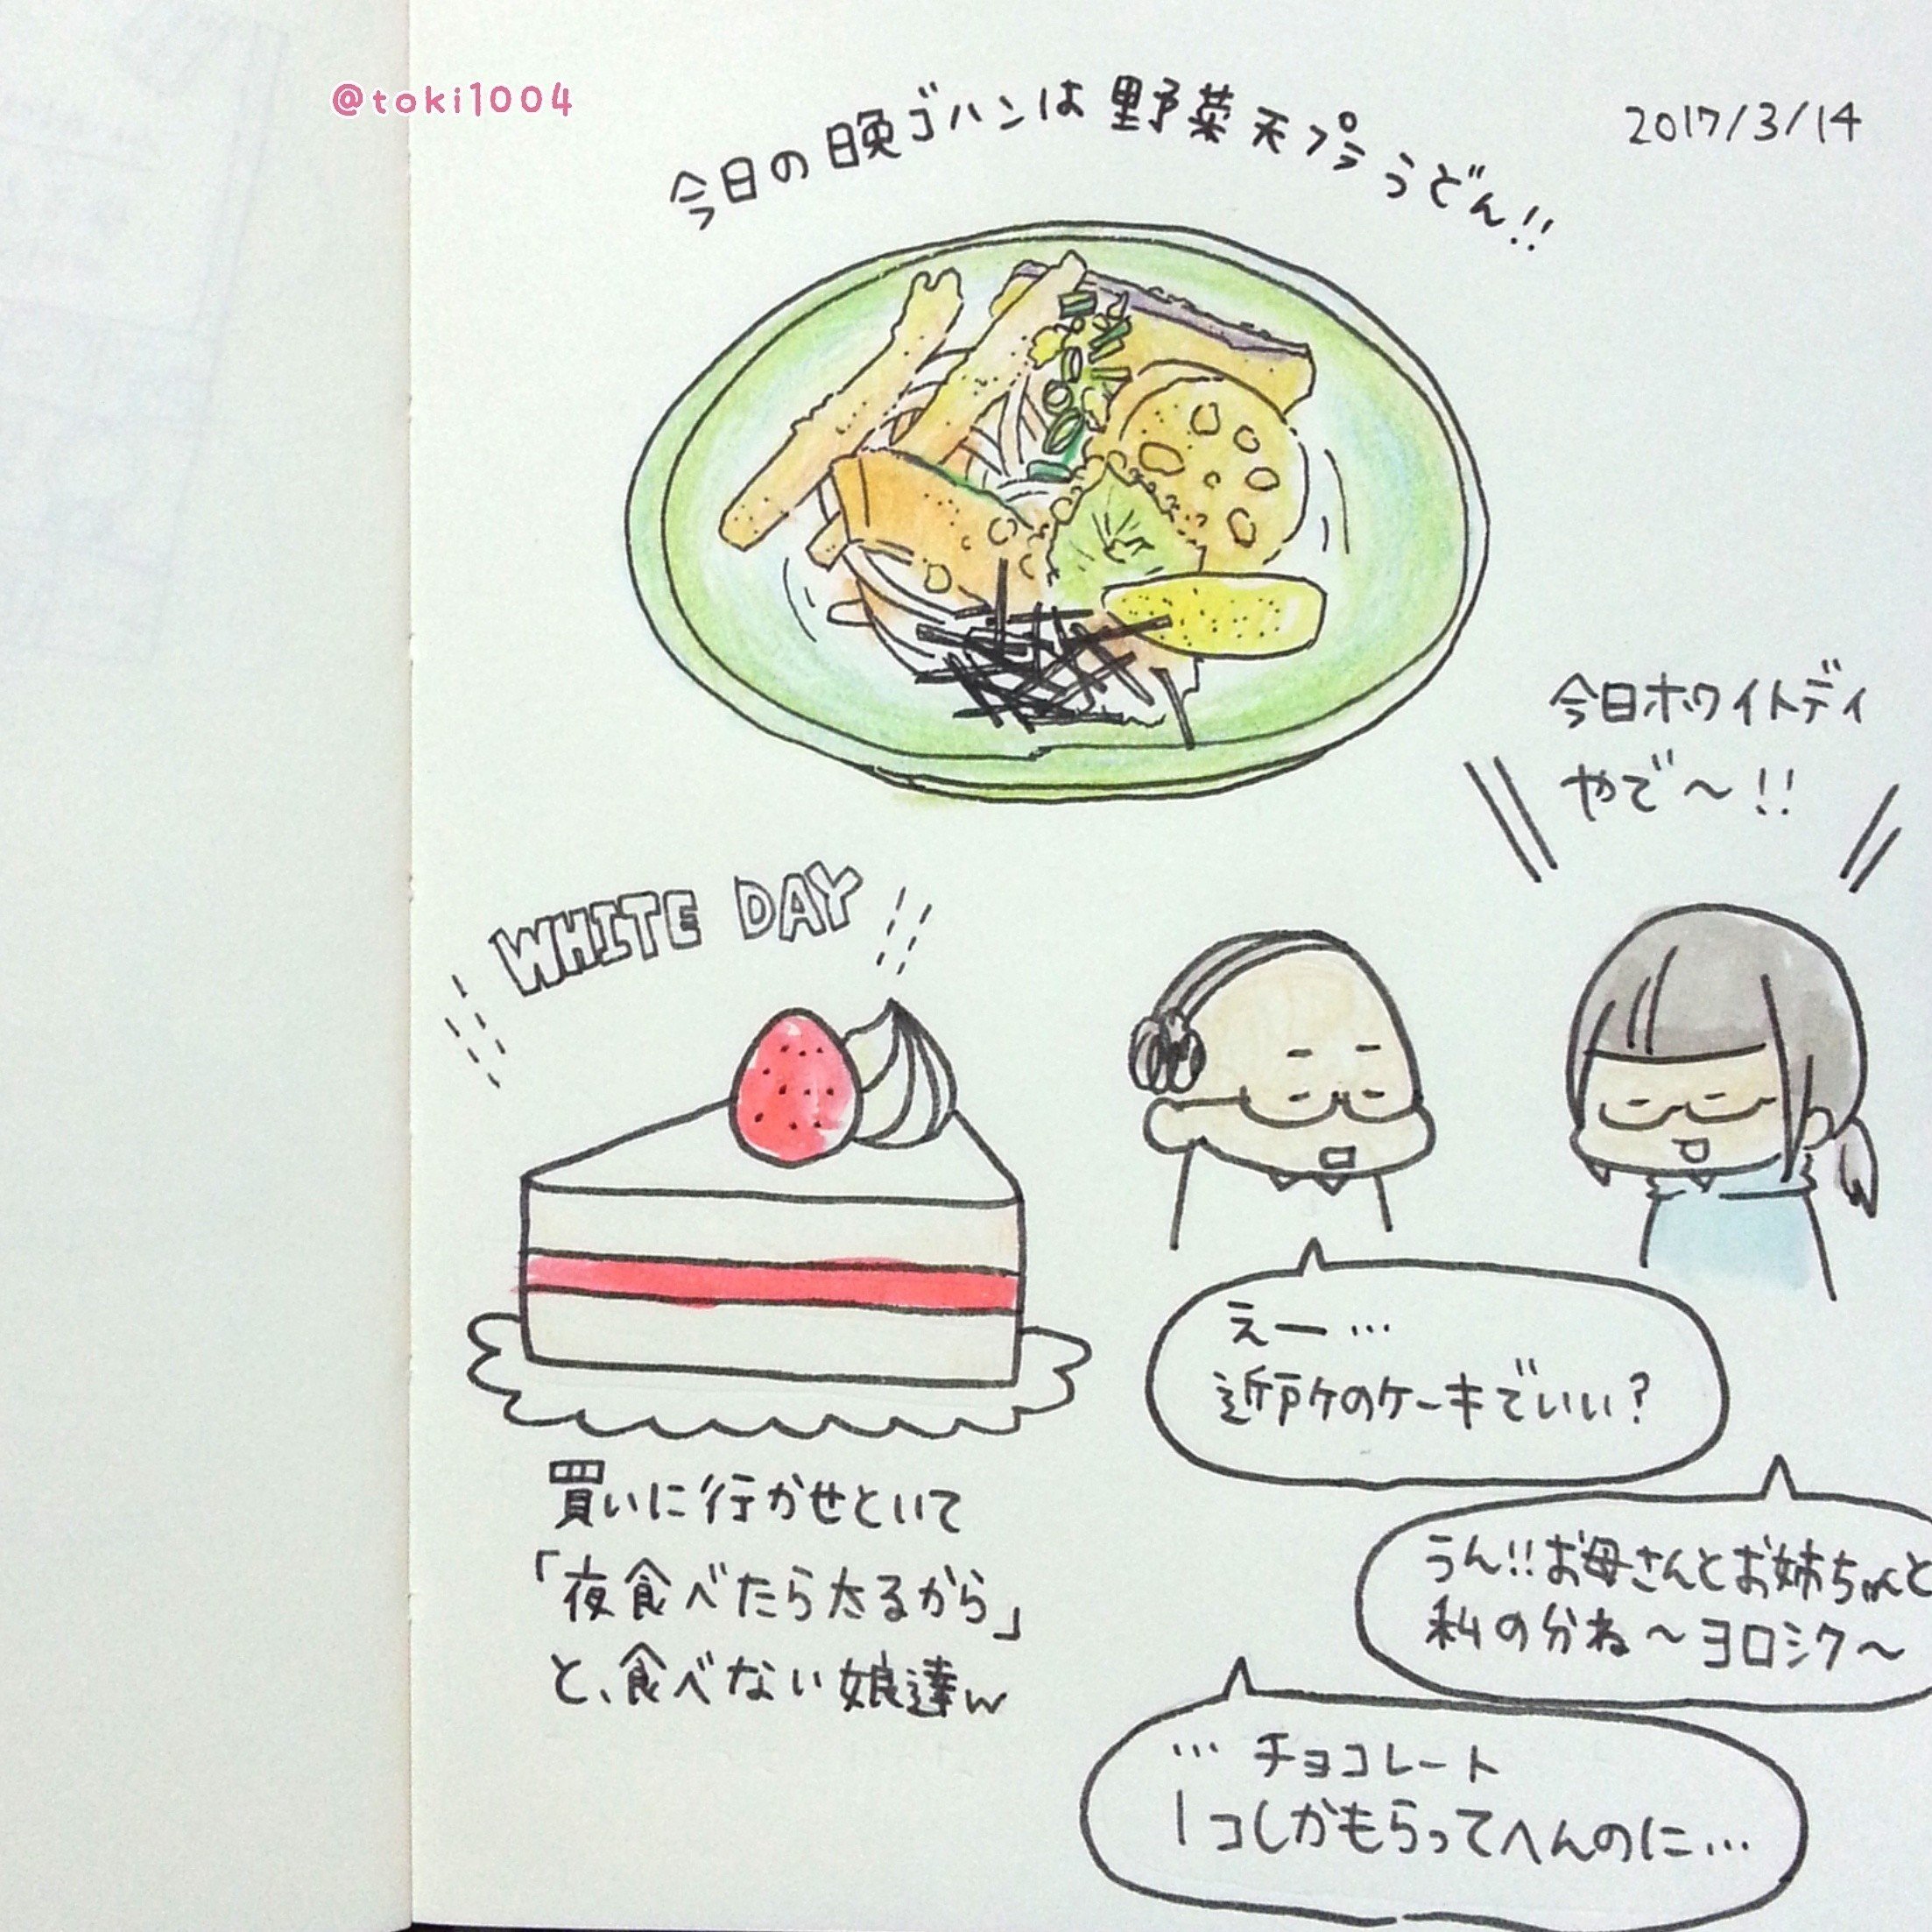 @toki1004
2017/3/14
今日の晩ゴハンは野菜天プラうどん!!
今日ホワイトディ
やで〜!!
WHITE DAY
えー…
近所のケーキでいい?
うん!!お母さんとお姉ちゃんと
私の分ね〜ヨロシク〜
…チョコレート
1コしかもらってへんのに…
買いに行かせといて
「夜食べたら太るから」
と、食べない娘達w